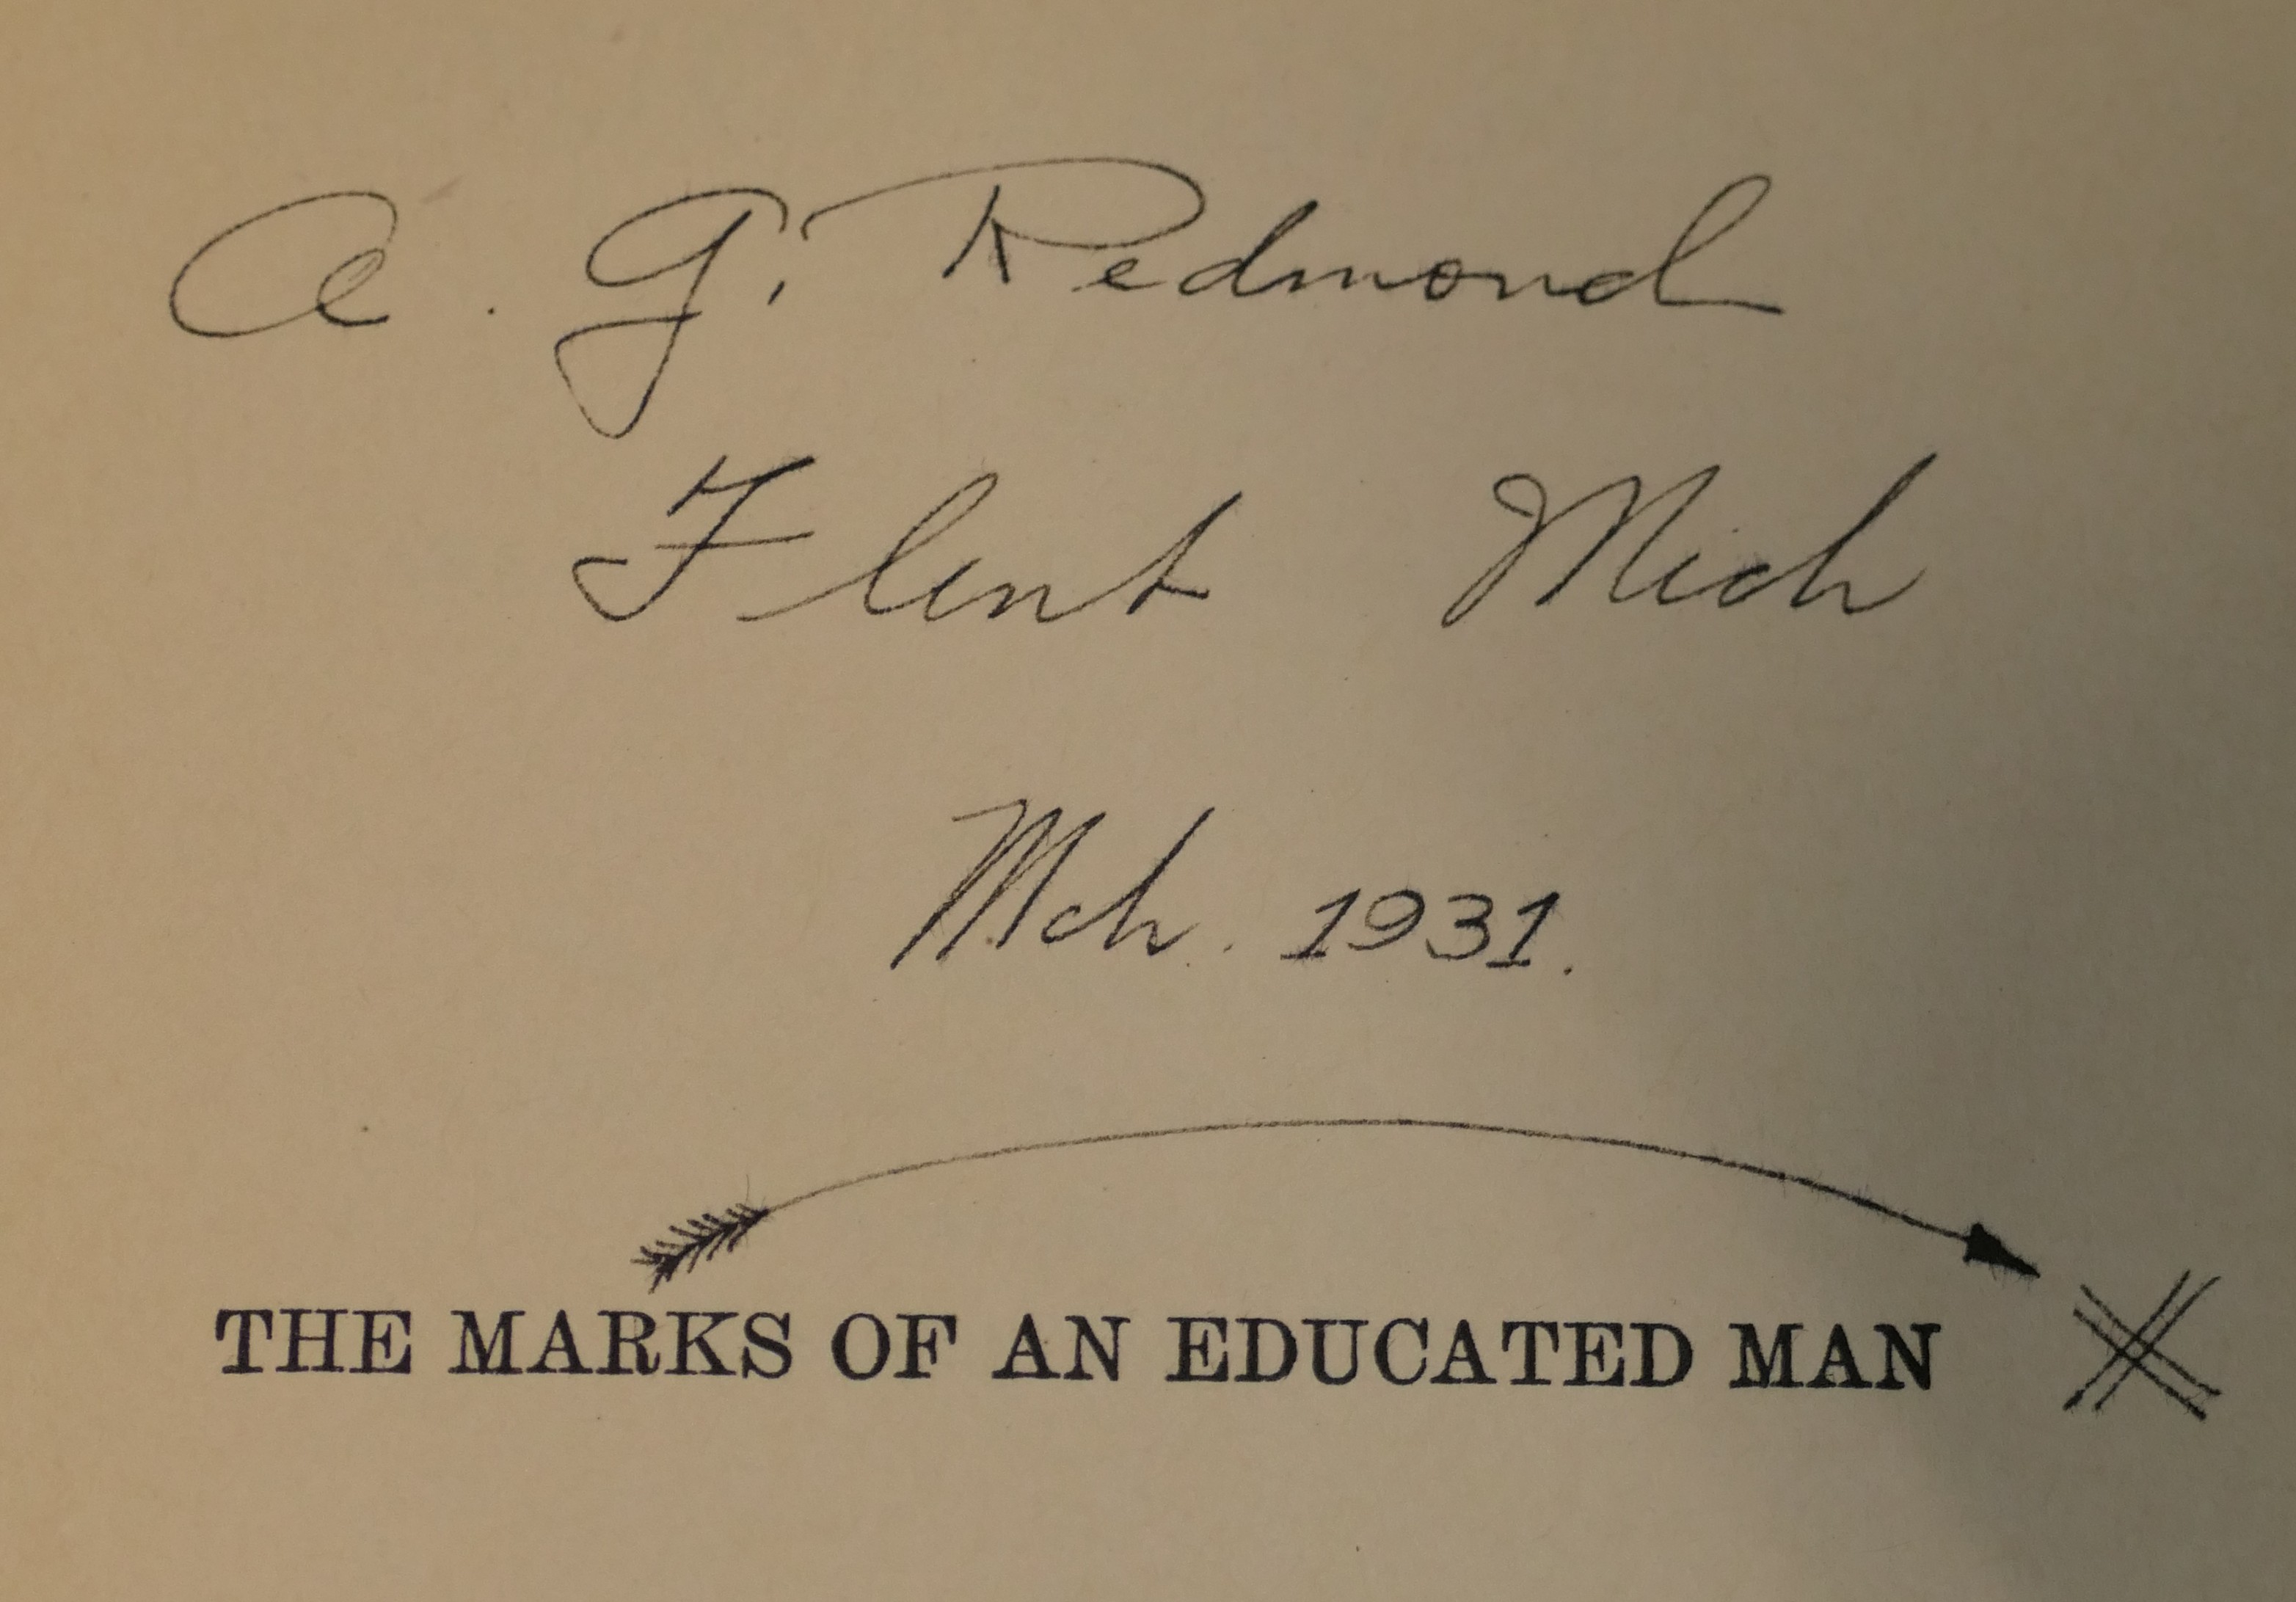 A. G. Redmond
Flint Mich
Mch. 1931.
THE MARKS OF AN EDUCATED MAN